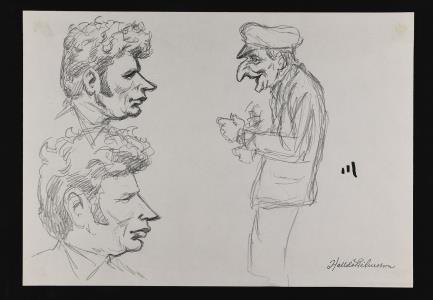 Halldór Pétursson